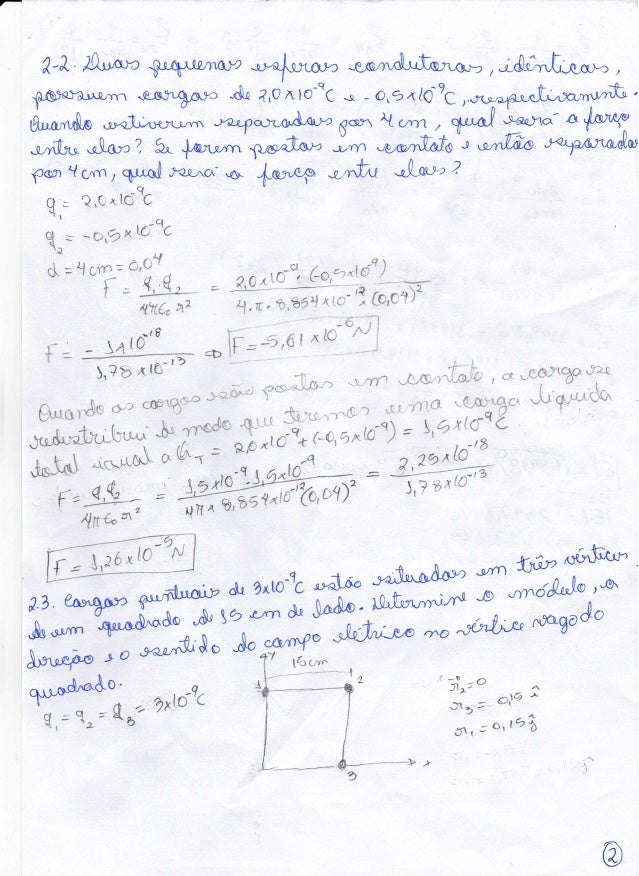 2-2. Duas pequenas esferas condutoras, idênticas,
possuem cargas de 2,0x10⁻⁹C e -0,5x10⁻⁹C, respectivamente.
Quando estiverem separadas por 4cm, qual será a força
entre elas? Se forem postas em contato e então separadas
por 4cm, qual será a força entre elas?
q₁ = 2,0x10⁻⁹C
q₂ = -0,5x10⁻⁹C
d = 4cm = 0,04
F = q₁.q₂ / 4πε₀ r² = 2,0x10⁻⁹.(-0,5x10⁻⁹) / 4.π.8,854x10⁻¹².(0,04)²
F = -1x10⁻¹⁸ / 1,78x10⁻¹³ ⇒ F = -5,61x10⁻⁶N
Quando as cargas são postas em contato, a carga se
redistribui de modo que teremos uma carga líquida
total igual a Q_T = 2,0x10⁻⁹+(-0,5x10⁻⁹) = 1,5x10⁻⁹C
F = q₁q₂ / 4πε₀ r² = 1,5x10⁻⁹.1,5x10⁻⁹ / 4πx8,854x10⁻¹²(0,04)² = 2,25x10⁻¹⁸ / 1,78x10⁻¹³
F = 1,26x10⁻⁵N
2.3. Cargas puntuais de 3x10⁻⁹C estão situadas em três vértices
de um quadrado de 15 cm de lado. Determine o módulo, a
direção e o sentido do campo elétrico no vértice vago do
quadrado.
q₁ = q₂ = q₃ = 3x10⁻⁹C
y
15cm
1 2
3 x
r₂=0
r₃ = 0,15 î
r₁ = 0,15 ĵ
2